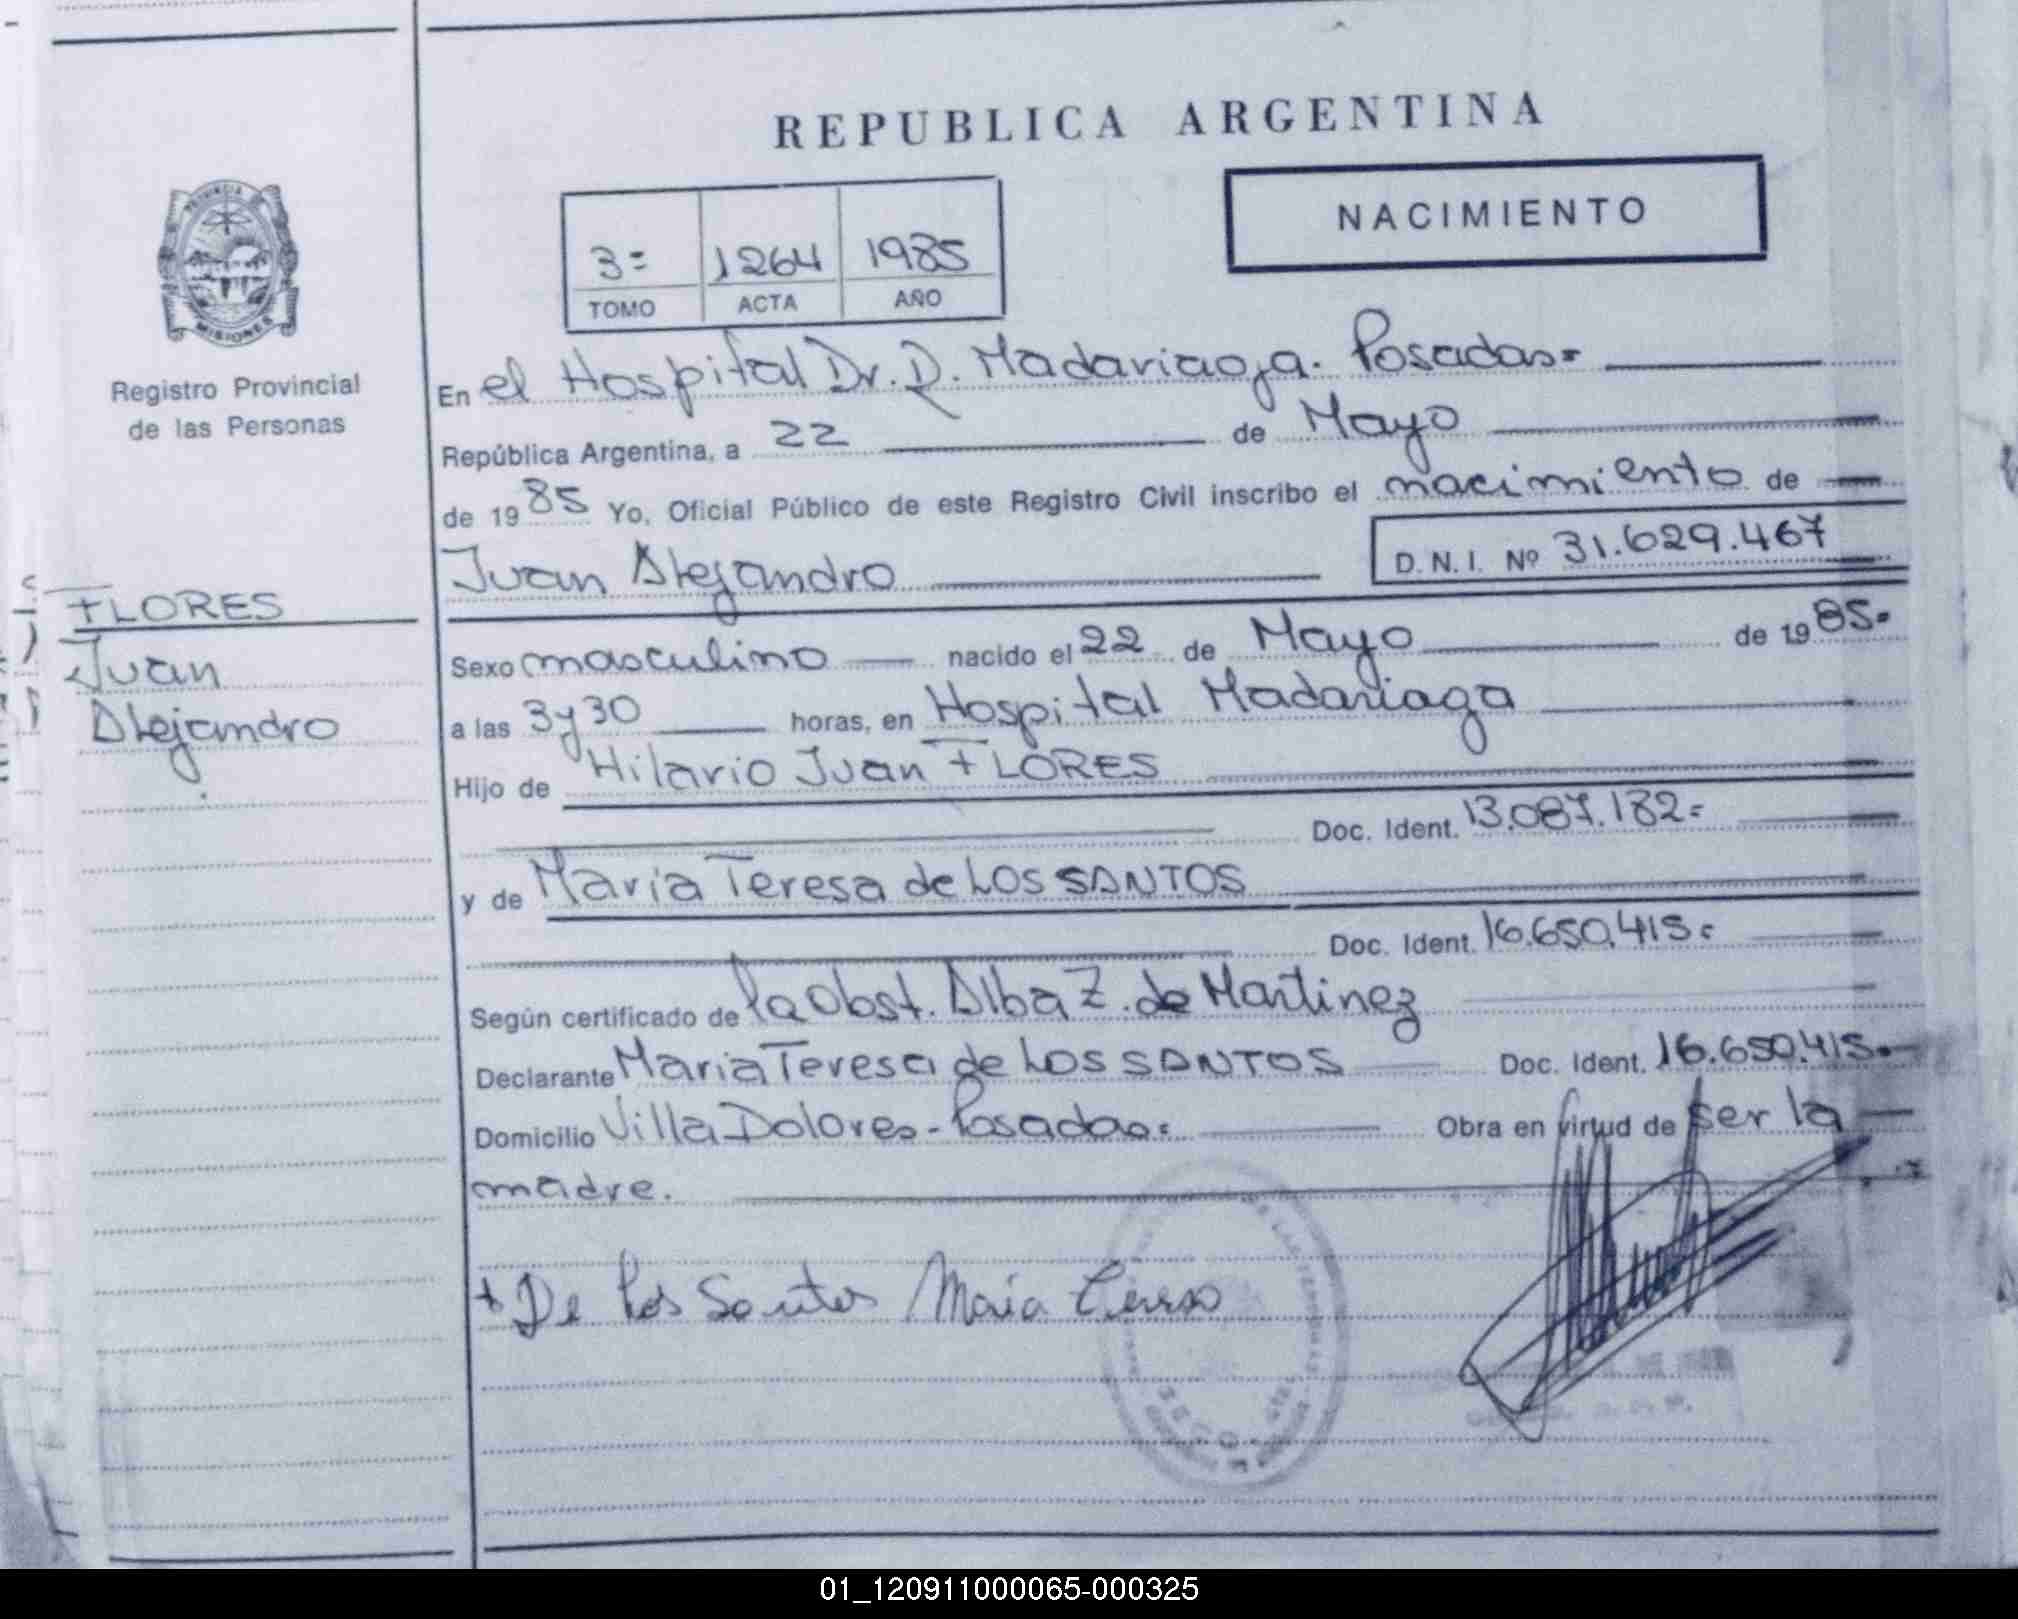 REPUBLICA ARGENTINA
NACIMIENTO
3= 1264 1985
TOMO ACTA AÑO
MISIONES
Registro Provincial
de las Personas
FLORES
Juan
Alejandro
En el Hospital Dr. R. Madariaga. Posadas=
República Argentina, a 22 de Mayo
de 1985 Yo, Oficial Público de este Registro Civil inscribo el nacimiento de
Juan Alejandro D.N.I. Nº 31.629.467
Sexo masculino nacido el 22 de Mayo de 1985.
a las 3 y 30 horas, en Hospital Madariaga
Hijo de Hilario Juan FLORES
Doc. Ident. 13.087.182=
y de Maria Teresa de LOS SANTOS
Doc. Ident. 16.650.415=
Según certificado de la Obst. Alba Z. de Martinez
Declarante Maria Teresa de LOS SANTOS Doc. Ident. 16.650.415.
Domicilio Villa Dolores - Posadas= Obra en virtud de ser la
madre.
+ De los Santos Maria Teresa
01_120911000065-000325